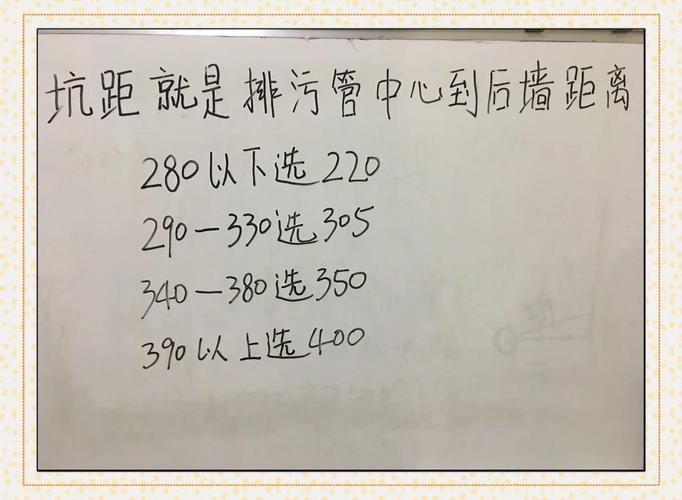 坑距就是排污管中心到后墙距离
280以下选220
290—330选305
340—380选350
390以上选400